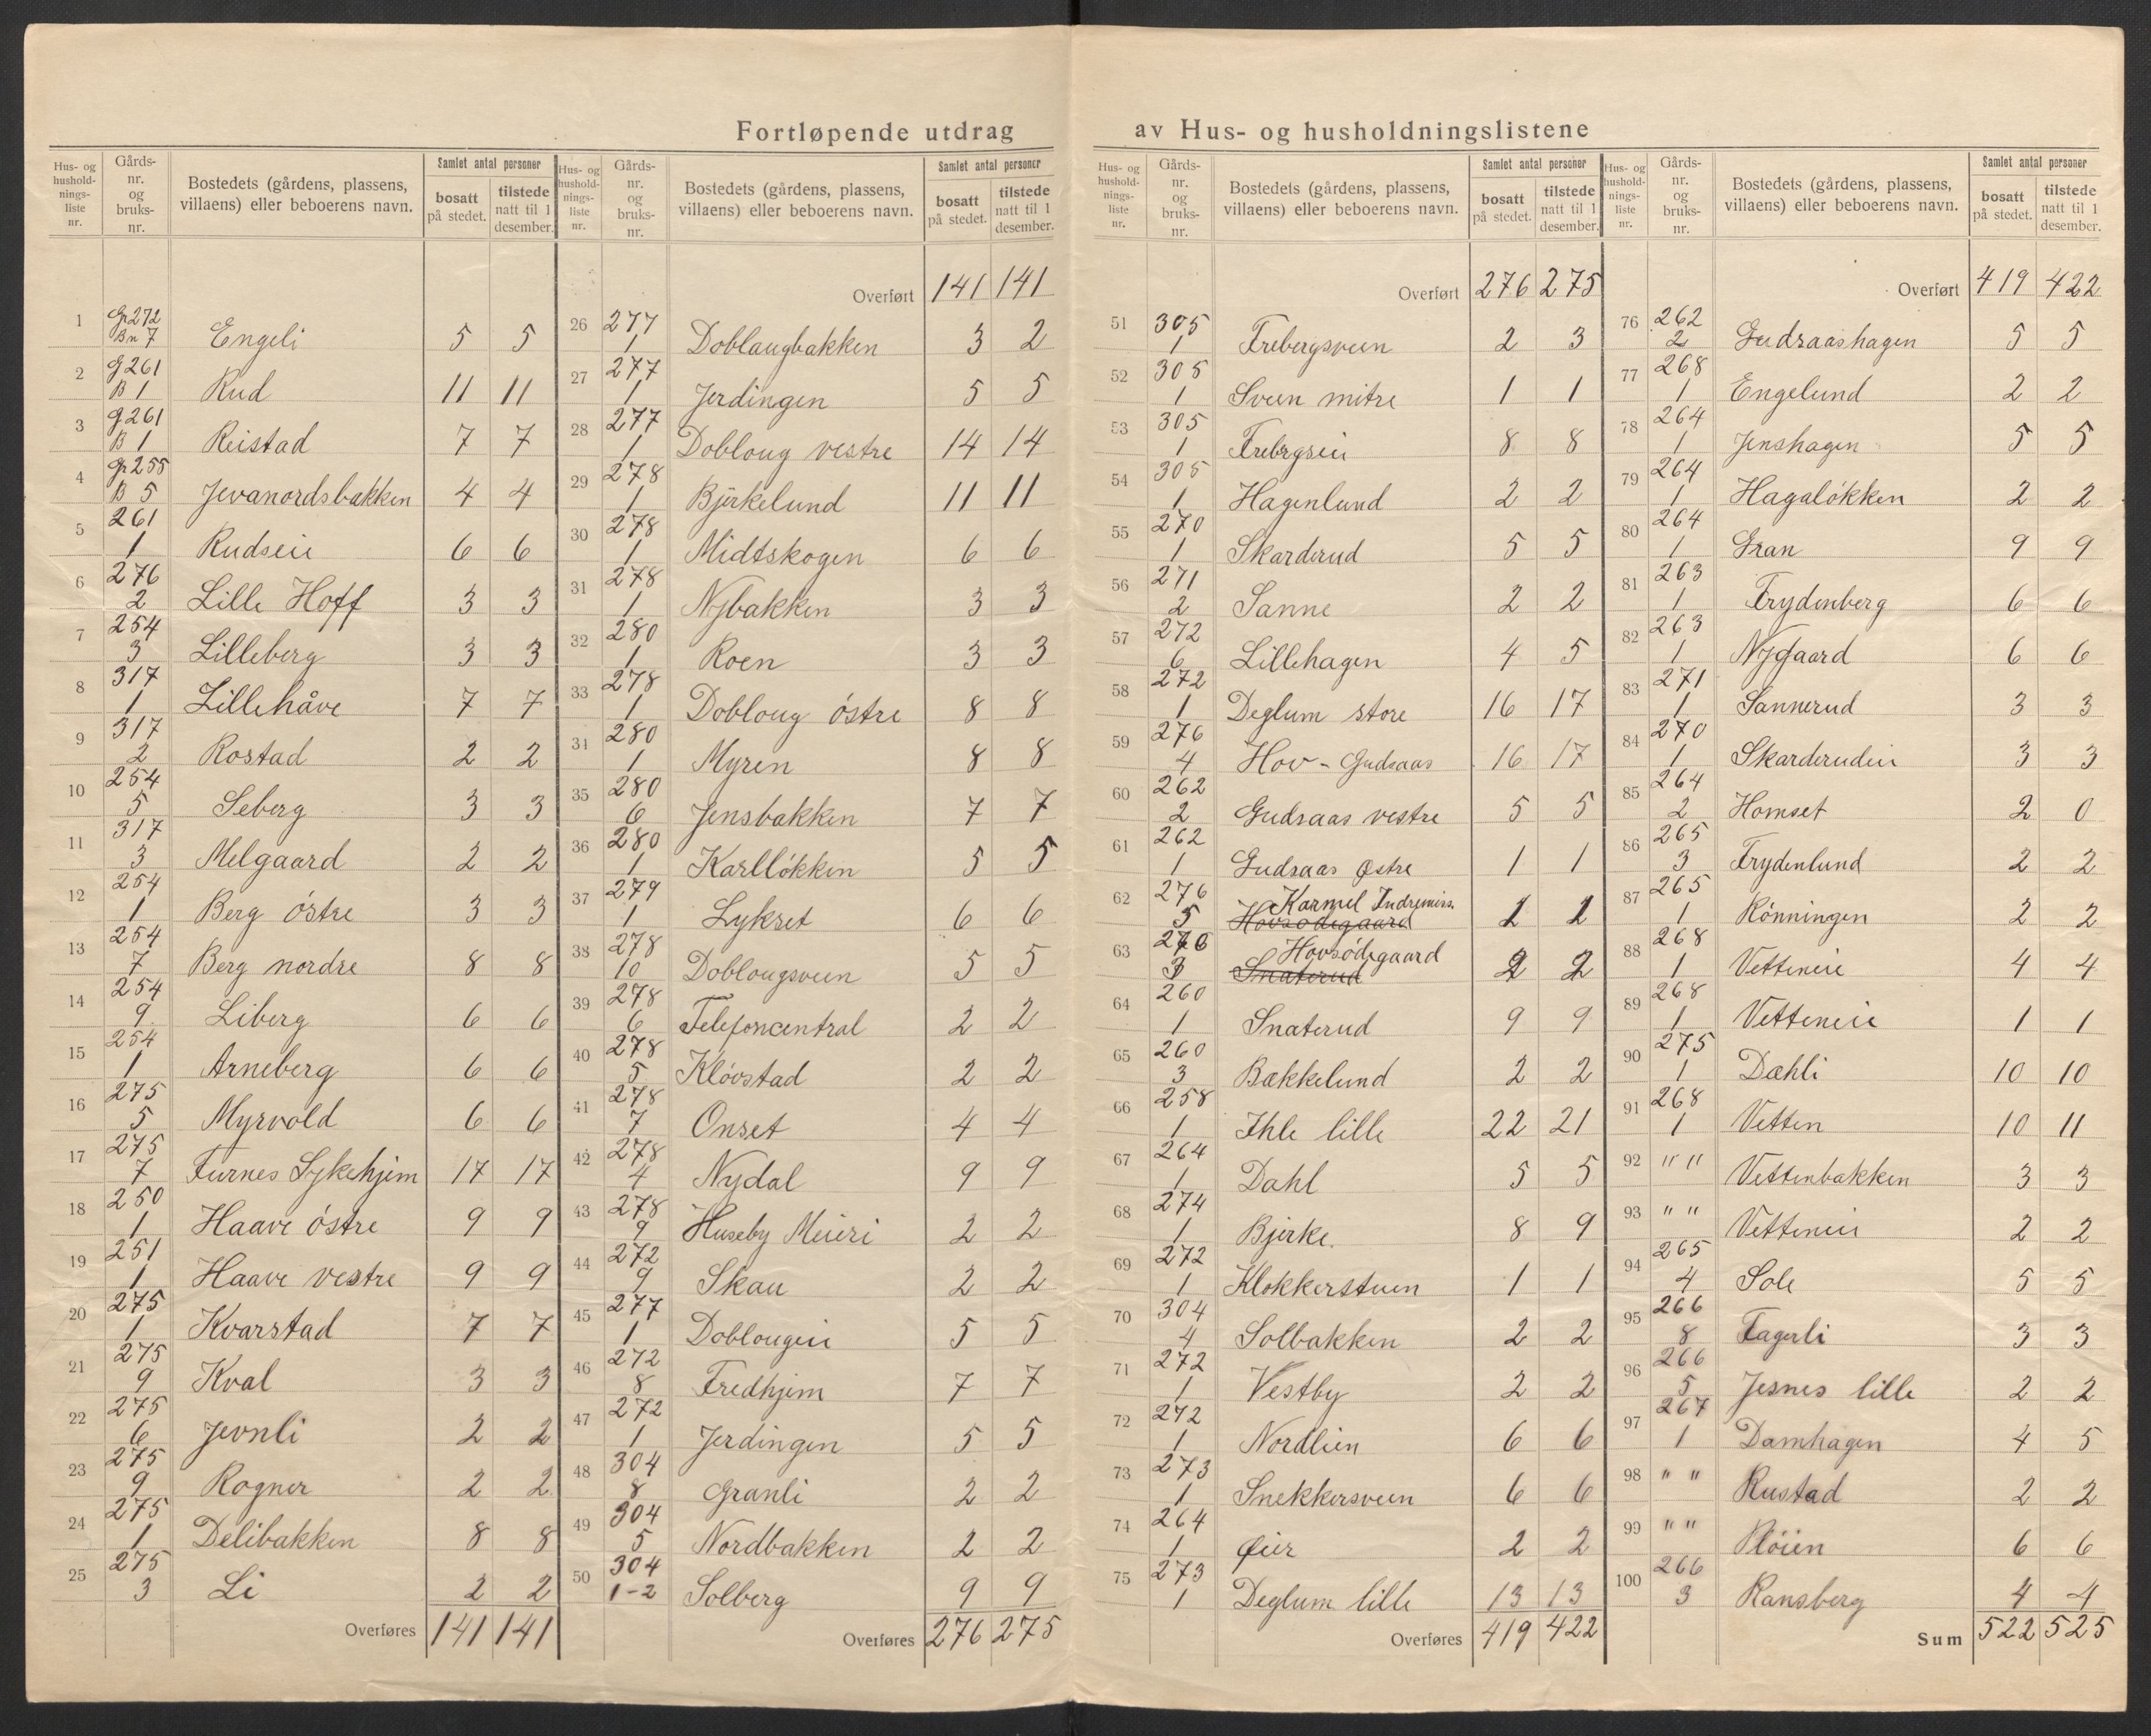 Fortløpende utdrag av Hus- og husholdningslistene
Hus- og hushold-nings-liste nr. Gårds-nr. og bruks-nr. Bostedets (gårdens, plassens, villaens) eller beboerens navn. Samlet antal personer bosatt på stedet. tilstede natt til 1 desember.
1 Gr 272 Bn 7 Engeli 5 5
2 G 261 B 1 Rud 11 11
3 G 261 B 1 Reistad 7 7
4 Gr 255 B 5 Jevanordsbakken 4 4
5 261 1 Rudseie 6 6
6 276 2 Lille Hoff 3 3
7 254 3 Lilleberg 3 3
8 317 1 Lillehåve 7 7
9 317 2 Rostad 2 2
10 254 5 Seberg 3 3
11 317 3 Melgaard 2 2
12 254 1 Berg östre 3 3
13 254 7 Berg nordre 8 8
14 254 9 Liberg 6 6
15 254 1 Arneberg 6 6
16 275 5 Myrvold 6 6
17 275 7 Furnes Sykehjem 17 17
18 250 1 Haave östre 9 9
19 251 1 Haave vestre 9 9
20 275 1 Kvarstad 7 7
21 275 9 Kval 3 3
22 275 6 Jevnli 2 2
23 275 9 Rogner 2 2
24 275 1 Delibakken 8 8
25 275 3 Li 2 2
Overføres 141 141
Hus- og hushold-nings-liste nr. Gårds-nr. og bruks-nr. Bostedets (gårdens, plassens, villaens) eller beboerens navn. Samlet antal personer bosatt på stedet. tilstede natt til 1 desember.
Overført 141 141
26 277 1 Doblaugbakken 3 2
27 277 1 Jerdingen 5 5
28 277 1 Dobloug vestre 14 14
29 278 1 Björkelund 11 11
30 278 1 Midtskogen 6 6
31 278 1 Nybakken 3 3
32 280 1 Roen 3 3
33 278 1 Dobloug östre 8 8
31 280 1 Myren 8 8
35 280 6 Jensbakken 7 7
36 280 1 Karllökken 5 5
37 279 1 Lykset 6 6
38 278 10 Doblougsveen 5 5
39 278 6 Telefoncentral 2 2
40 278 5 Klövstad 2 2
41 278 7 Onset 4 4
42 278 4 Nydal 9 9
43 278 9 Huseby Meieri 2 2
44 272 9 Skau 2 2
45 277 1 Doblougeie 5 5
46 272 8 Fredhjem 7 7
47 272 1 Jerdingen 5 5
48 304 8 Granli 2 2
49 304 5 Nordbakken 2 2
50 304 1-2 Solberg 9 9
Overføres 276 275
Hus- og hushold-nings-liste nr. Gårds-nr. og bruks-nr. Bostedets (gårdens, plassens, villaens) eller beboerens navn. Samlet antal personer bosatt på stedet. tilstede natt til 1 desember.
Overført 276 275
51 305 1 Frebergsveen 2 3
52 305 1 Sveen mitre 1 1
53 305 1 Frebrgseie 8 8
54 305 1 Hagenlund 2 2
55 270 1 Skarderud 5 5
56 271 2 Sanne 2 2
57 272 6 Lillehagen 4 5
58 272 1 Deglum store 16 17
59 276 4 Hov - Gudsaas 16 17
60 262 2 Gudsaas vestre 5 5
61 262 1 Gudsaas østre 1 1
62 276 5 Karmel Indremiss. Hovsödegaard 1 1
63 276 3 Hovsödegaard Snaterud 2 2
64 260 1 Snaterud 9 9
65 260 3 Bakkelund 2 2
66 258 1 Ihle lille 22 21
67 264 1 Dahl 5 5
68 274 1 Bjerke. 8 9
69 272 1 Klokkerstuen 1 1
70 304 4 Solbakken 2 2
71 272 1 Vestby 2 2
72 272 1 Nordlien 6 6
73 273 1 Snekkersveen 6 6
74 264 1 Øier 2 2
75 273 1 Deglum lille 13 13
Overføres 419 422
Hus- og hushold-nings-liste nr. Gårds-nr. og bruks-nr. Bostedets (gårdens, plassens, villaens) eller beboerens navn. Samlet antal personer bosatt på stedet. tilstede natt til 1 desember.
Overført 419 422
76 262 2 Gudsaashagen 5 5
77 268 1 Engelund 2 2
78 264 1 Jenshagen 5 5
79 264 1 Hagalökken 2 2
80 264 1 Gran 9 9
81 263 1 Frydenberg 6 6
82 263 1 Nygaard 6 6
83 271 1 Sannerud 3 3
84 270 1 Skarderudeie 3 3
85 264 2 Homset 2 0
86 265 3 Frydenlund 2 2
87 265 1 Rönningen 2 2
88 268 1 Vetteneie 4 4
89 268 1 Vetteneie 1 1
90 275 1 Dahli 10 10
91 268 1 Vetten 10 11
92 " " Vettenbakken 3 3
93 " " Vetteneie 2 2
94 265 4 Sole 5 5
95 266 8 Fagerli 3 3
96 266 5 Jesnes lille 2 2
97 267 1 Damhagen 4 5
98 " " Rustad 2 2
99 " " Plöien 6 6
100 266 3 Ransberg 4 4
Sum 522 525